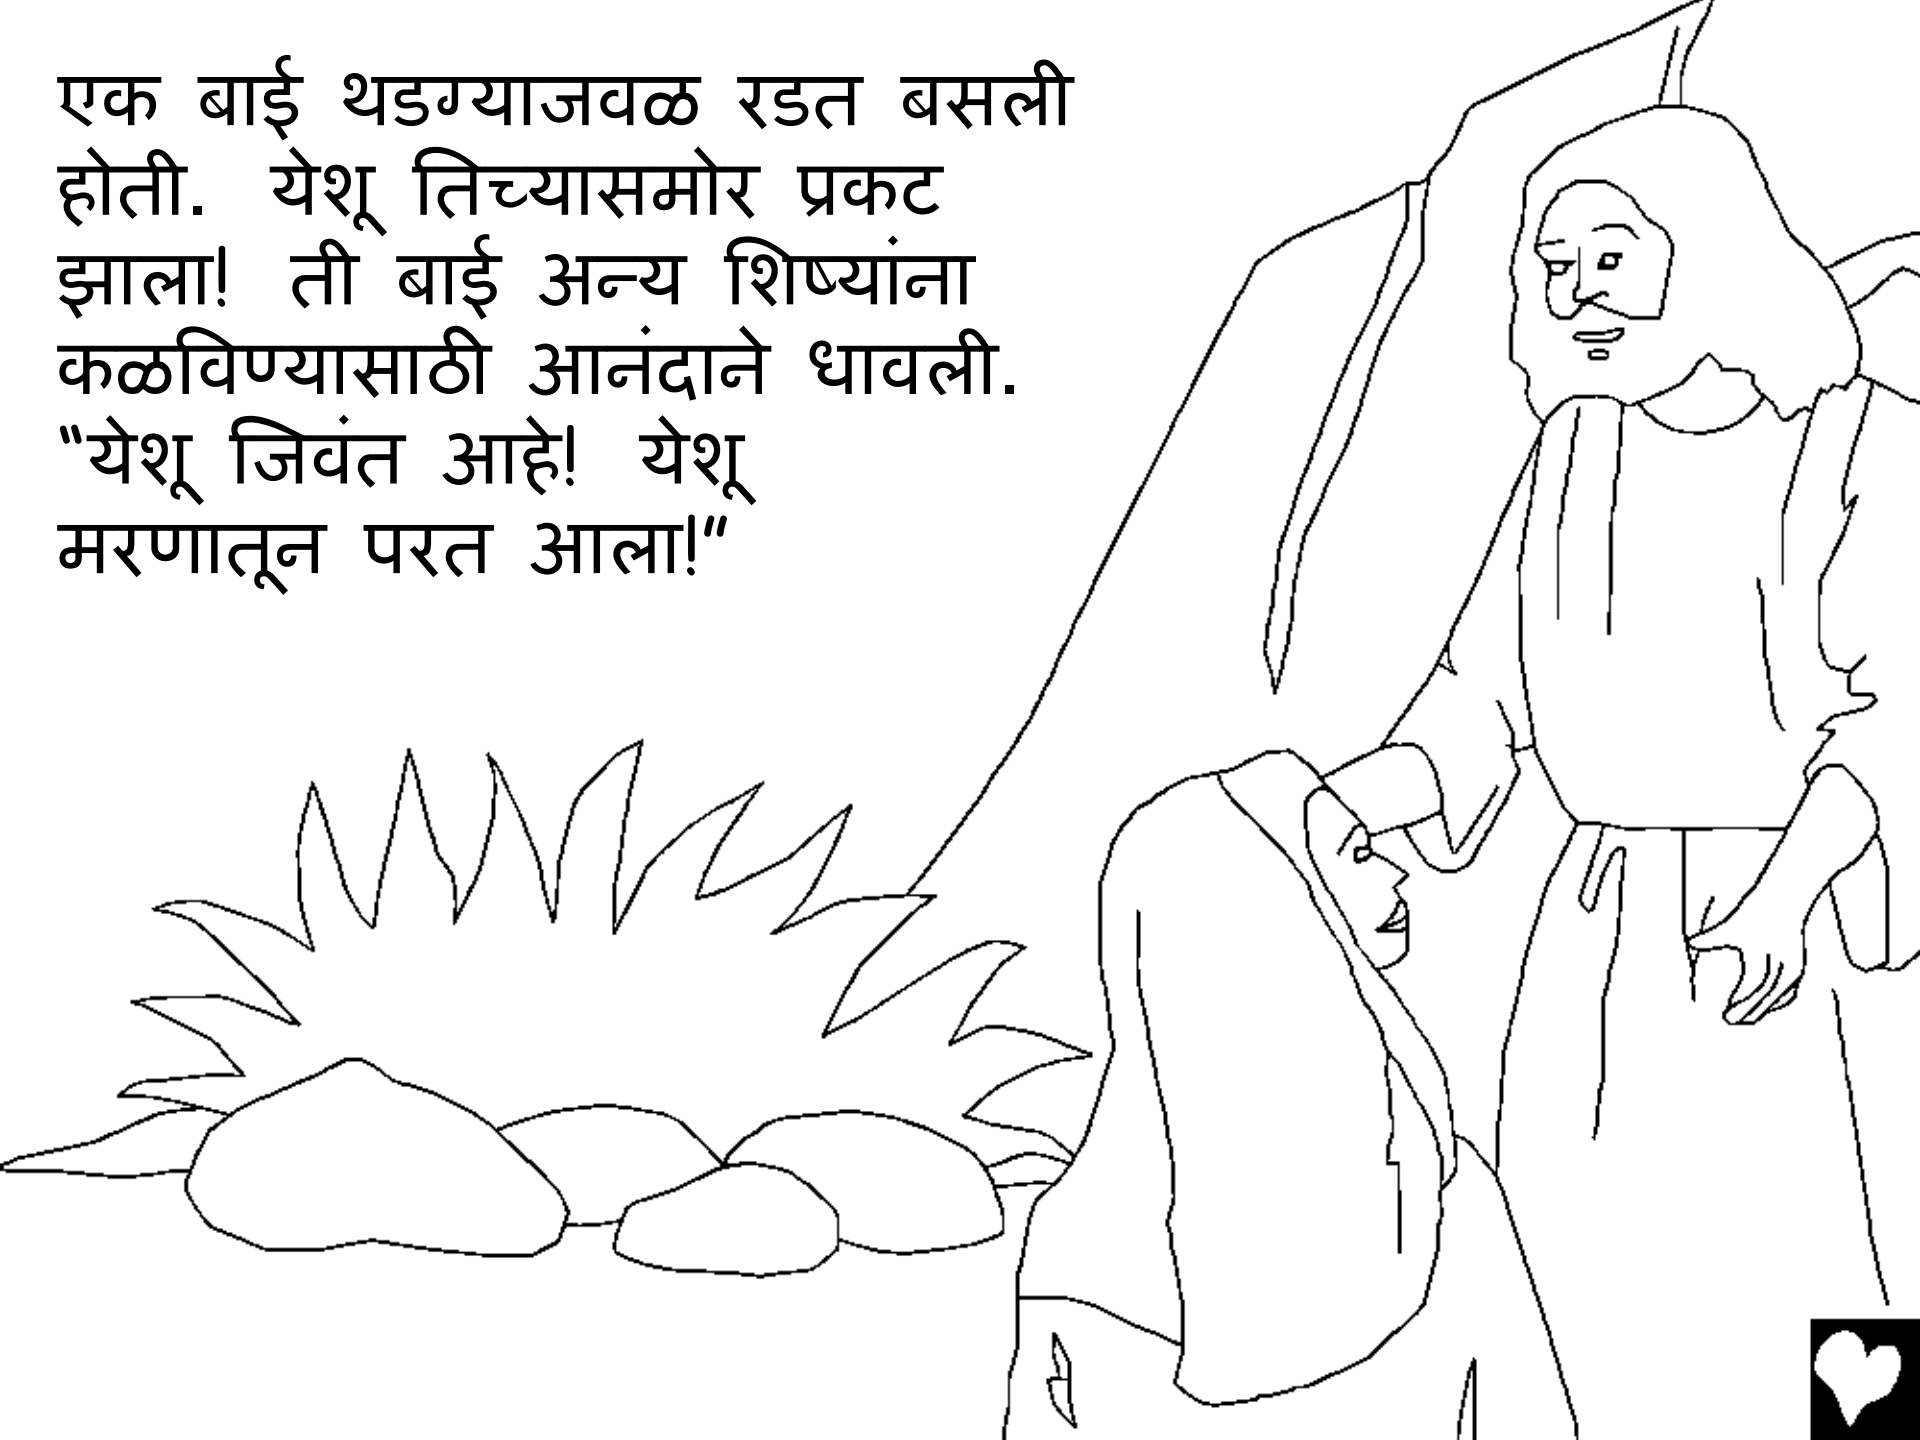 एक बाई थडग्याजवळ रडत बसली
होती. येशू तिच्यासमोर प्रकट
झाला! ती बाई अन्य शिष्यांना
कळविण्यासाठी आनंदाने धावली.
“येशू जिवंत आहे! येशू
मरणातून परत आला!”